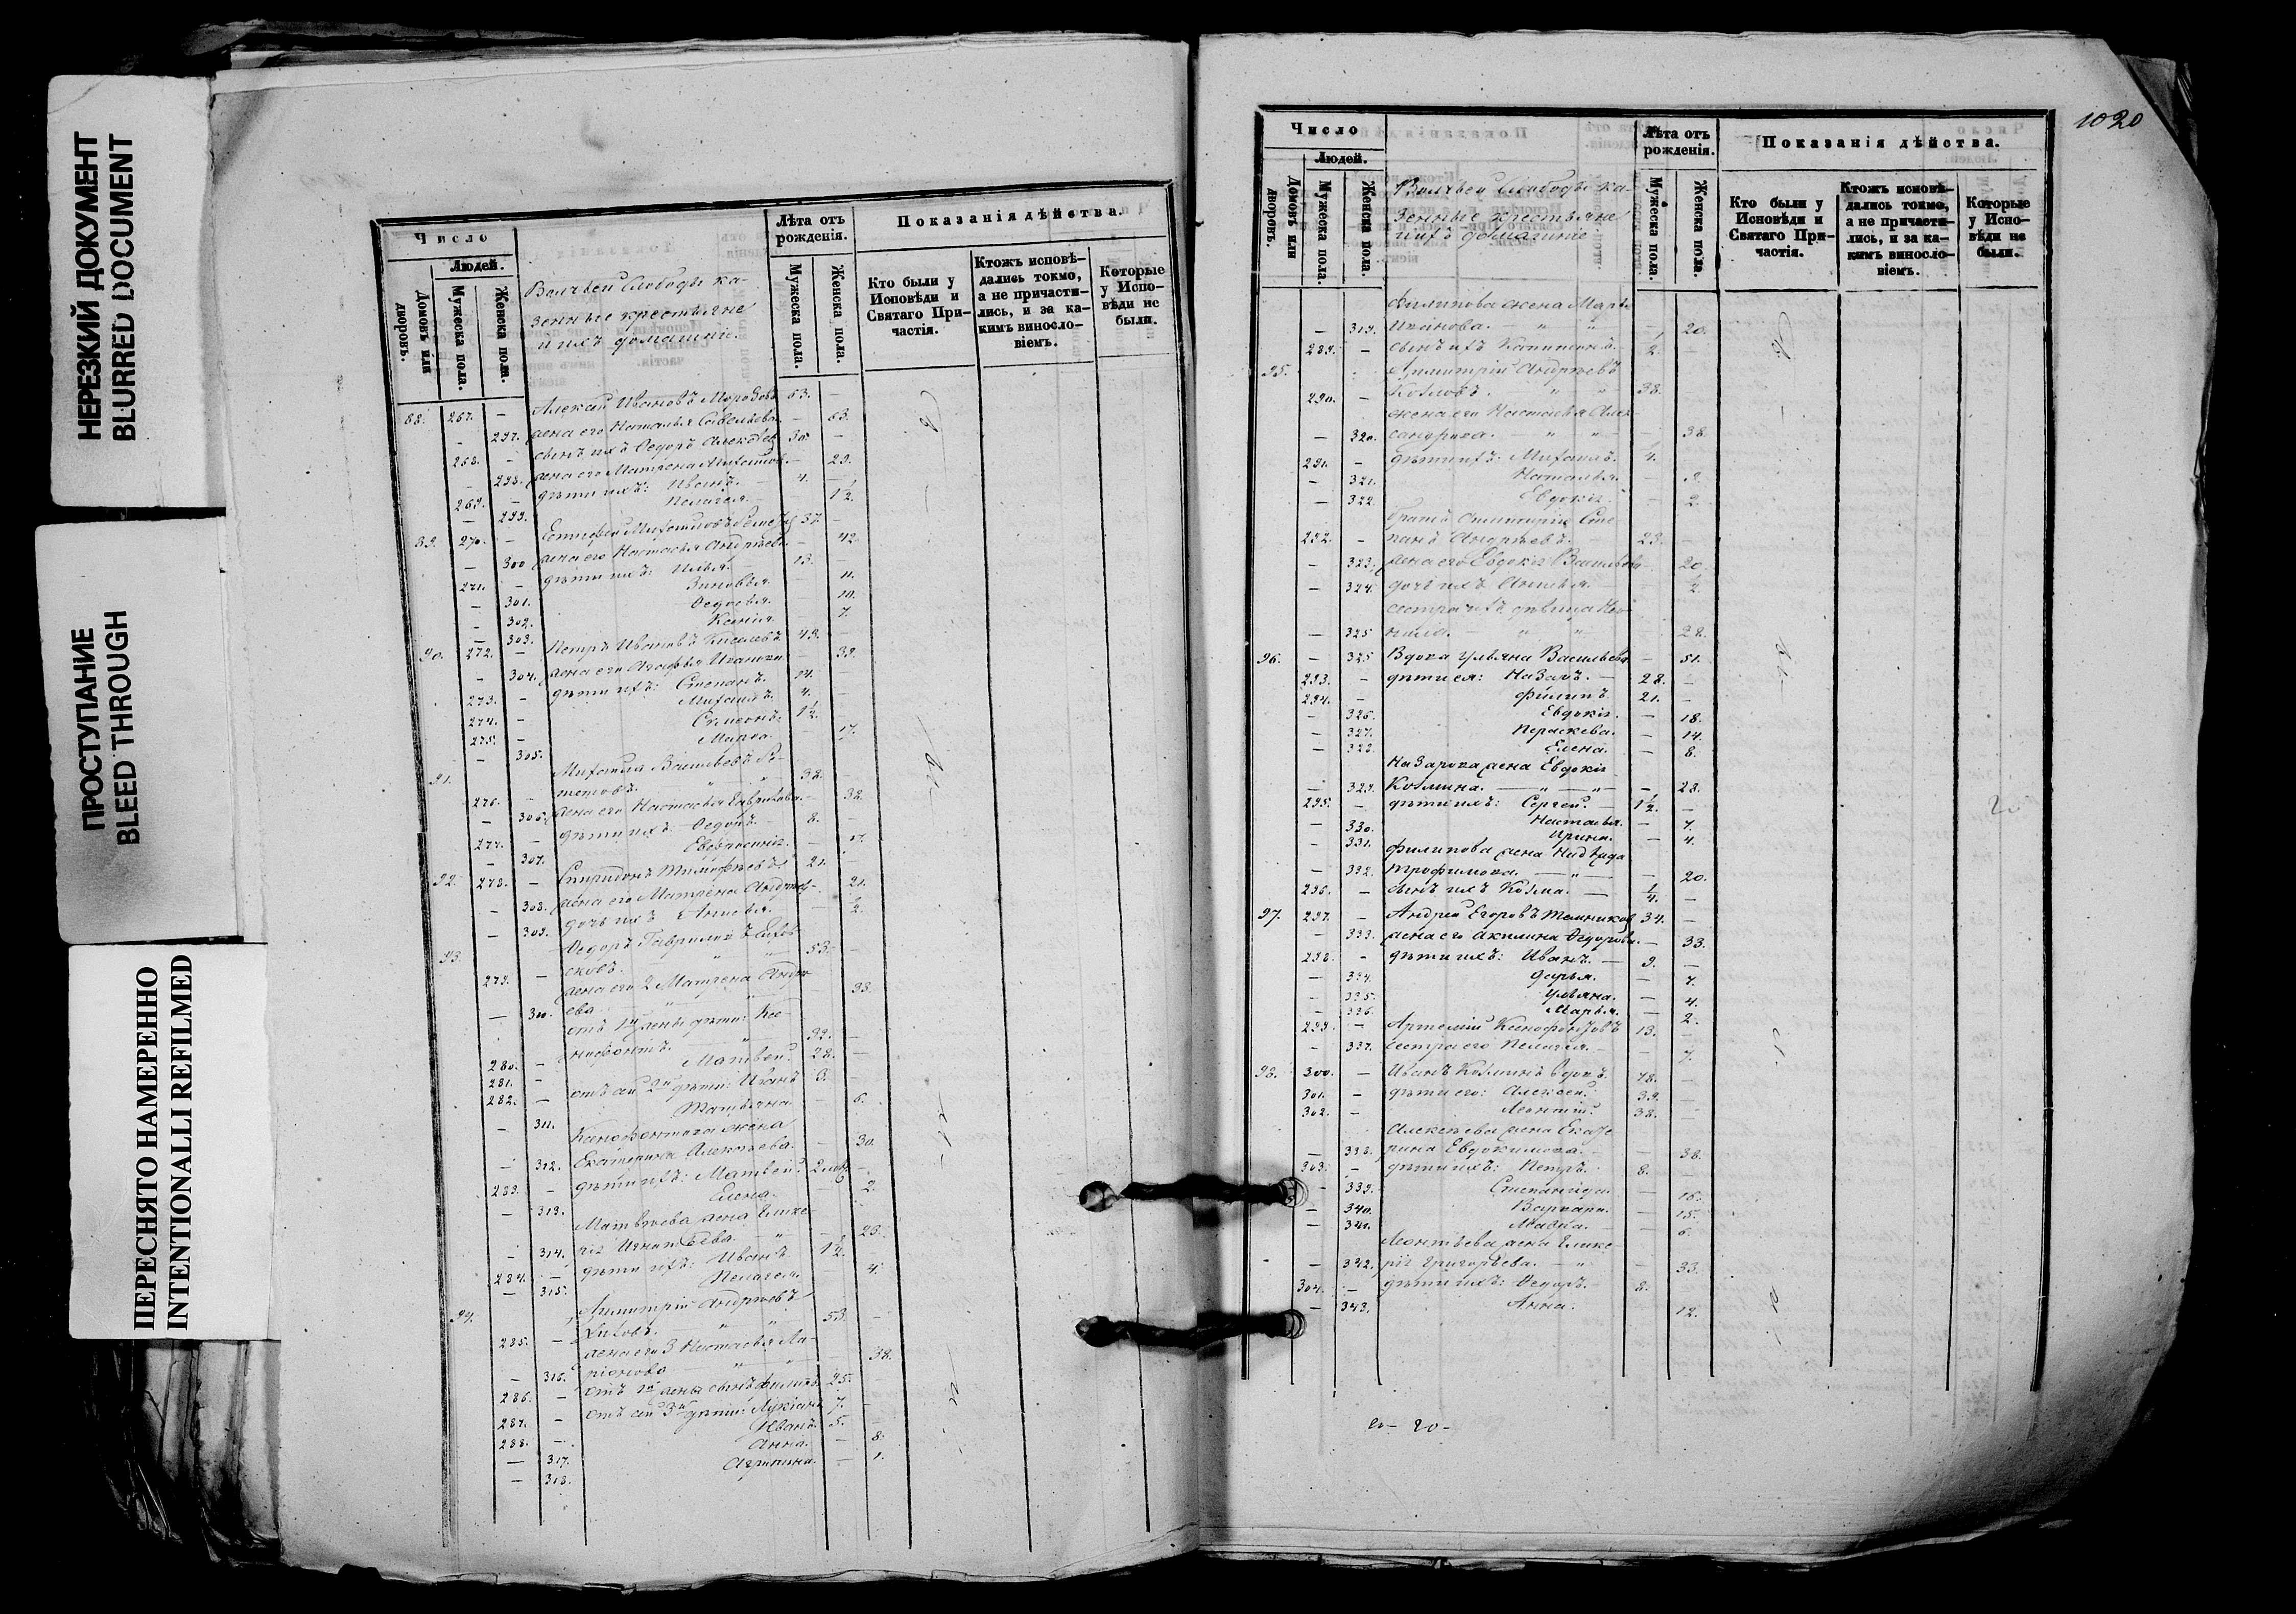 НЕРЕЗКИЙ ДОКУМЕНТ
BLURRED DOCUMENT
ПРОСТУПАНИЕ
BLEED THROUGH
ПЕРЕСНЯТО НАМЕРЕННО
INTENTIONALLI REFILMED
Число
Людей.
Домовъ или дворовъ.
Мужеска пола.
Женска пола.
Лѣта отъ рожденія.
Мужеска пола.
Женска пола.
Показанія дѣйства.
Кто были у Исповѣди и Святаго Причастія.
Ктожъ исповѣдались токмо, а не причастились, и за какимъ винословіемъ.
Которые у Исповѣди не были.
Волчьей Слободы ка-
зенные крестьяне
и ихъ домашніе.
88. 267. – Алексѣй Ивановъ Морозовъ 63. –
– 297. жена его Наталья Савельева – 63.
268. – сынъ ихъ Ѳедоръ 30. –
– 298. жена его Матрена – 29.
269. – дѣти ихъ: Иванъ. 4. –
– 299. Пелагея. – 1½.
89. 270. – Михайловъ 37. –
– 300 жена его Настасья Андреева – 42.
271. – дѣти ихъ: Илья. 13. –
– 301. Зиновья. 11.
– 302. Ѳедосья. 10.
– 303. Ксенія. 7.
90. 272. – Петръ Ивановъ Киселевъ 49. –
– 304. жена его Агафья Иванова – 39.
273. – дѣти ихъ: Степанъ. 14. –
274. – Михаилъ. 4. –
275. – Семеонъ. 1½.
– 305. Марѳа. 17.
91. Михаила Васильевъ
276. – 38. –
– 306. жена его Настасья Гаврилова. – 38.
277. – дѣти ихъ: Ѳедоръ. 8. –
– 307. Евфросинія. – 17.
92. 278. – Спиридонъ Тимофѣевъ 21. –
– 308. жена его Матрена – 21.
– 309. дочь ихъ – ½.
93. Ѳедоръ Гавриловъ
279. – 53. –
жена его 2 Матрена Андре-
– 310. ева – 38.
отъ 1й жены дѣти: Ксе-
280. – нофонтъ. 32. –
281. – Матвей. 28. –
282. – отъ сей 2й дѣти: Иванъ 3. –
– 311. Татьяна – 6.
Ксенофонтова жена
– 312. Екатерина Алексѣева. – 30.
283. – дѣти ихъ: Матвей.
– 313. Елена. 2.
Матвѣева жена Глике-
– 314. рія Игнатьева. – 23.
284. – дѣти ихъ: Иванъ 1½ –
– 315. Пелагея. 4.
94. Димитрій Андреевъ
285. – 53. –
жена его 3 Настасья Ла-
– 316. ріонова – 38.
286. – отъ 1й жены сынъ Филипъ. 25. –
287. – отъ сей 3й дѣти: Лукіанъ 7. –
288. – Иванъ. 5. –
– 317. Анна. – 8.
– 318. Агрипина. – 1.
1020
Число
Людей.
Домовъ или дворовъ.
Мужеска пола.
Женска пола.
Лѣта отъ рожденія.
Мужеска пола.
Женска пола.
Показанія дѣйства.
Кто были у Исповѣди и Святаго Причастія.
Ктожъ исповѣдались токмо, а не причастились, и за какимъ винословіемъ.
Которые у Исповѣди не были.
Волчьей Слободы ка-
зенные крестьяне
и ихъ домашніе
Филипова жена Марья
– 319. Иванова. – 20.
289. – сынъ ихъ ½. –
95. Димитрій Андреевъ
290. – Козловъ. 38. –
жена его Настасья Алек-
– 320. сандрова. – 38.
291. – дѣти ихъ: Михаилъ. 4.
– 321. Наталья.
– 322. Евдокія – 2.
братъ Димитрія Сте-
292. – панъ Андреевъ. 23. –
– 323. жена его Евдокія Васильева 20.
– 324. дочь ихъ ½.
сестра ихъ дѣвица
– 325 28.
96. – 325 Вдова Ульяна Васильева – 51.
293. – дѣти ея: Назаръ. – 28. –
294. – Филипъ. 21. –
– 326. Евдокія. – 18.
– 327. Пераскева. – 14.
– 328. Елена. – 8.
Назарова жена Евдокія
– 329. Козмина. – 28.
295. – дѣти ихъ: Сергей. – 1½. –
– 330. Настасья. – 7.
– 331. Ирина. – 4.
Филипова жена Надежда
– 332. Трофимова. – 20.
296. – сынъ ихъ Козма. ¼. –
97. 297. – Андрей Егоровъ Темниковъ 34. –
– 333. жена его Акилина Ѳедорова. – 33.
298. – дѣти ихъ: Иванъ. – 9. –
– 334. Дарья. – 7.
– 335. Ульяна. – 4.
– 336. Марья. – 2.
299. – Артемій Ксенофонтовъ 13. –
– 337. сестра его Пелагея. – 7.
98. 300. – Иванъ Козминъ вдовъ. 78. –
301. – дѣти его: Алексей. 39. –
302. – Леонтій. 38. –
Алексѣева жена Екате
– 338. рина Евдокимова. – 38.
303. – дѣти ихъ: Петръ. 8. –
– 339. Степанида. – 16.
– 340. Варвара. – 15.
– 341. – 6.
Леонтьева жена Глике
– 342. рія Григорьева. – 33.
304. – дѣти ихъ: Ѳедоръ. 8.
– 343. Анна. 12.